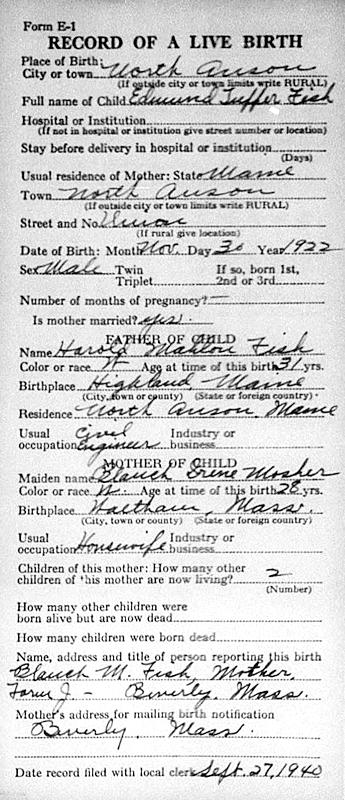 Form E-1
RECORD OF A LIVE BIRTH
Place of Birth:
City or town North Anson
(If outside city or town limits write RURAL)
Full name of Child Edmund Tuffer Fish
Hospital or Institution
(If not in hospital or institution give street number or location)
Stay before delivery in hospital or institution
(Days)
Usual residence of Mother: State Maine
Town North Anson
(If outside city or town limits write RURAL)
Street and No. Union
(If rural give location)
Date of Birth: Month Nov. Day 30 Year 1922
Sex Male Twin If so, born 1st,
Triplet 2nd or 3rd
Number of months of pregnancy? —
Is mother married? yes.
FATHER OF CHILD
Name Harold Mahlon Fish
Color or race W Age at time of this birth 31 yrs.
Birthplace Highland Maine
(City, town or county) (State or foreign country)
Residence North Anson, Maine
Usual Civil Industry or
occupation Engineer business
MOTHER OF CHILD
Maiden name Blanch Irene Mosher
Color or race W Age at time of this birth 28 yrs.
Birthplace Waltham, Mass.
(City, town or county) (State or foreign country)
Usual Industry or
occupation Housewife business
Children of this mother: How many other
children of this mother are now living? 2
(Number)
How many other children were
born alive but are now dead
How many children were born dead
Name, address and title of person reporting this birth
Blanch M. Fish, Mother,
Form J - Beverly, Mass.
Mother's address for mailing birth notification
Beverly, Mass.
Date record filed with local clerk Sept. 27, 1940